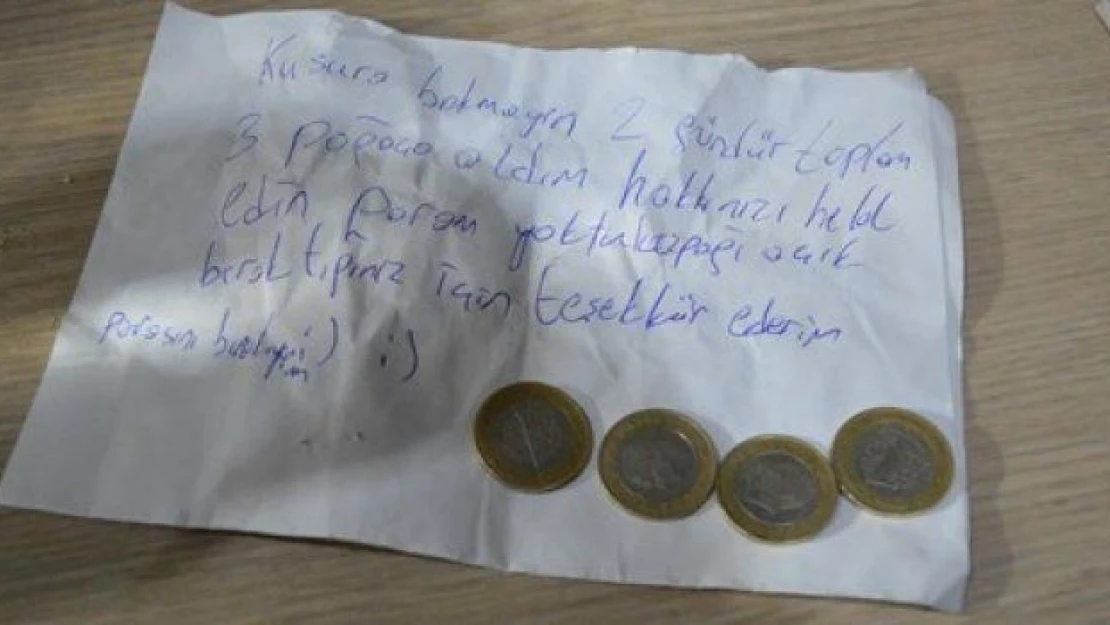 Kusura bakmayın 2 gündür toplam
3 poğaça aldım hakkınızı helal
edin param yoktu kapağı açık
bıraktığınız için teşekkür ederim
parasını :) :)